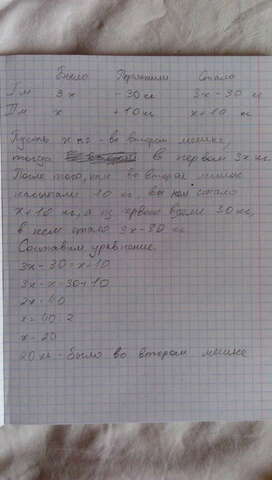 Было Переложили Стало
I м 3x - 30 кг 3x - 30 кг
II м x + 10 кг x + 10 кг
Пусть x кг - во втором мешке,
тогда в первом 3x кг.
После того, как во второй мешок
насыпали 10 кг, в нём стало
x + 10 кг, а из первого взяли 30 кг,
в нём стало 3x - 30 кг
Составим уравнение.
3x - 30 = x + 10
3x - x = 30 + 10
2x = 40
x = 40 : 2
x = 20
20 кг - было во втором мешке